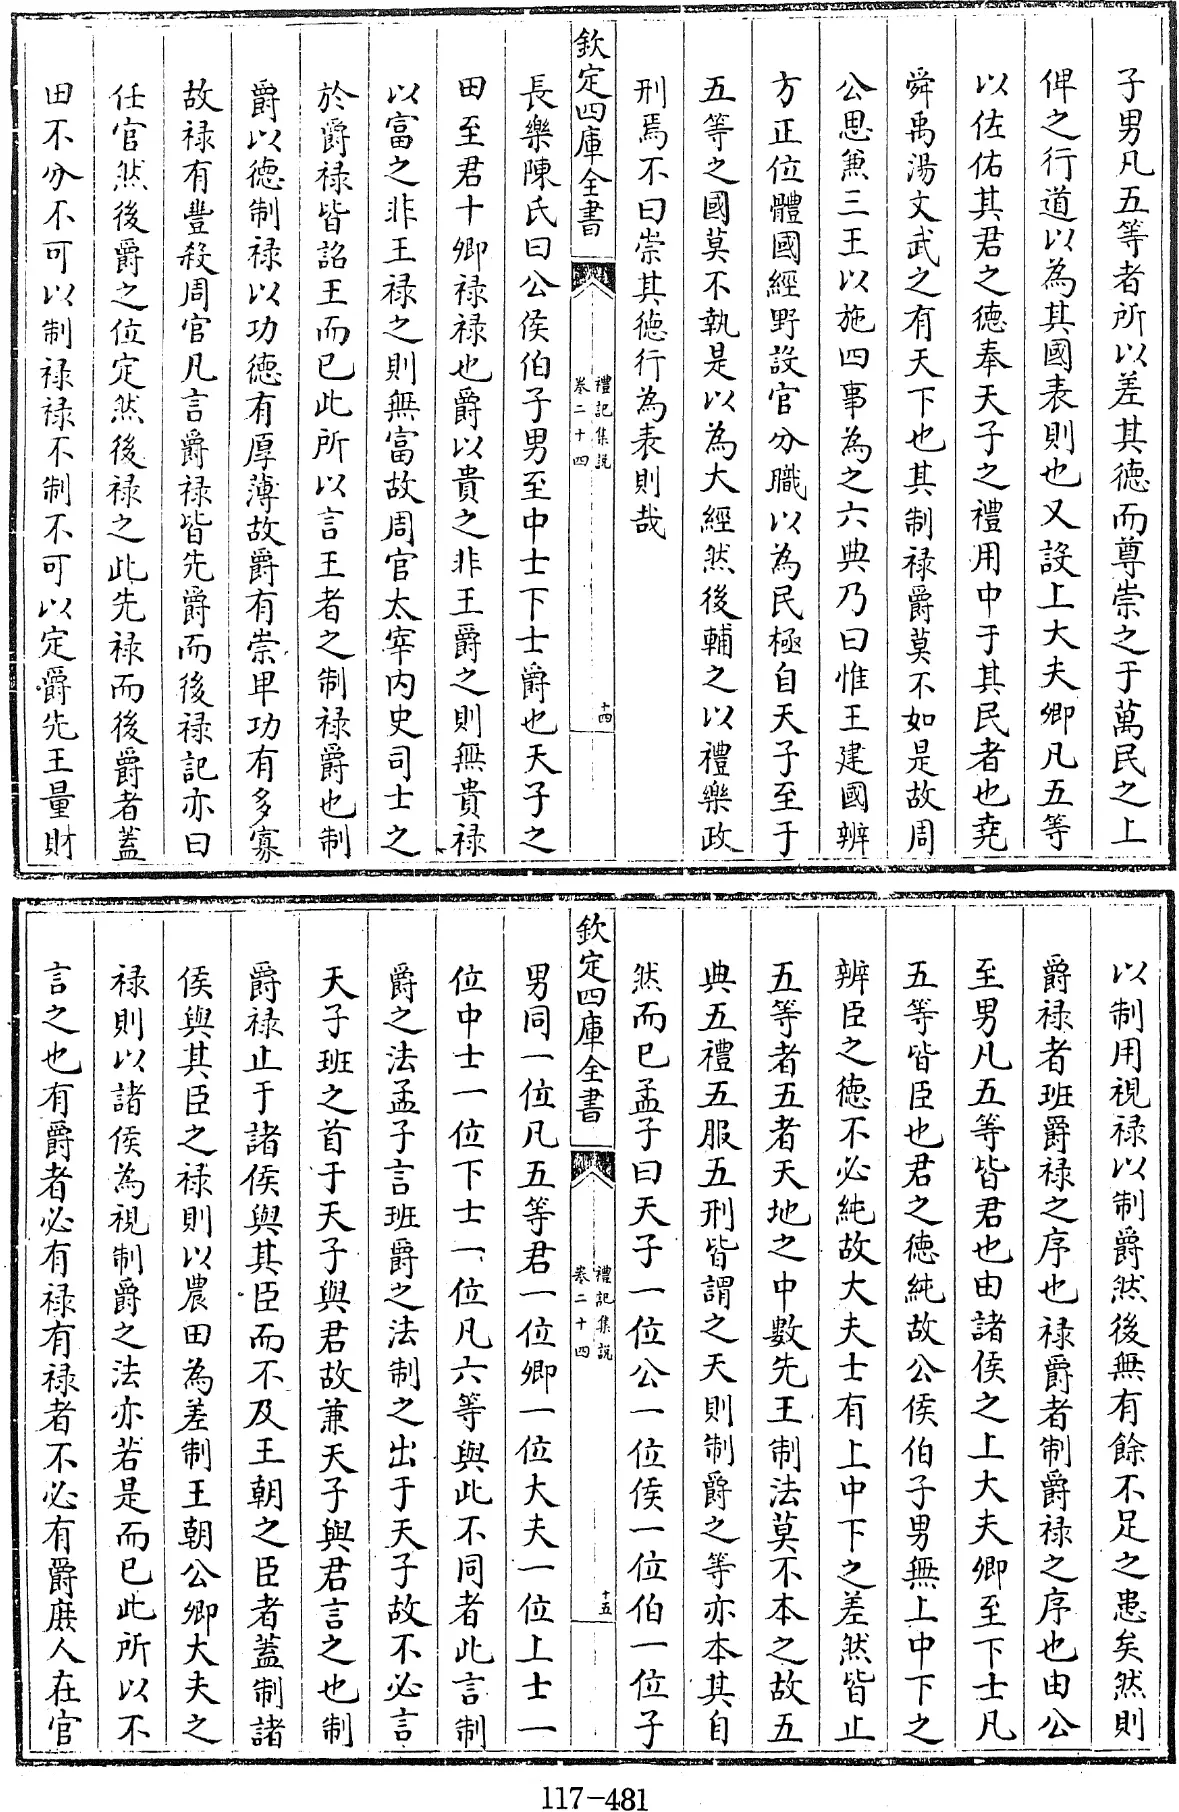 子男凡五等者所以差其德而尊崇之于萬民之上
俾之行道以為其國表則也又設上大夫卿凡五等
以佐佑其君之德奉天子之禮用中于其民者也堯
舜禹湯文武之有天下也其制禄爵莫不如是故周
公思兼三王以施四事為之六典乃曰惟王建國辨
方正位體國經野設官分職以為民極自天子至于
五等之國莫不執是以為大經然後輔之以禮樂政
刑焉不曰崇其德行為表則哉
欽定四庫全書
禮記集説
卷二十四
十四
長樂陳氏曰公侯伯子男至中士下士爵也天子之
田至君十卿禄禄也爵以貴之非王爵之則無貴禄
以富之非王禄之則無富故周官太宰内史司士之
於爵禄皆詔王而已此所以言王者之制禄爵也制
爵以德制禄以功德有厚薄故爵有崇卑功有多寡
故禄有豐殺周官凡言爵禄皆先爵而後禄記亦曰
任官然後爵之位定然後禄之此先禄而後爵者蓋
田不分不可以制禄禄不制不可以定爵先王量財
以制用視禄以制爵然後無有餘不足之患矣然則
爵禄者班爵禄之序也禄爵者制爵禄之序也由公
至男凡五等皆君也由諸侯之上大夫卿至下士凡
五等皆臣也君之德純故公侯伯子男無上中下之
辨臣之德不必純故大夫士有上中下之差然皆止
五等者五者天地之中數先王制法莫不本之故五
典五禮五服五刑皆謂之天則制爵之等亦本其自
然而已孟子曰天子一位公一位侯一位伯一位子
欽定四庫全書
禮記集説
卷二十四
十五
男同一位凡五等君一位卿一位大夫一位上士一
位中士一位下士一位凡六等與此不同者此言制
爵之法孟子言班爵之法制之出于天子故不必言
天子班之首于天子與君故兼天子與君言之也制
爵禄止于諸侯與其臣而不及王朝之臣者蓋制諸
侯與其臣之禄則以農田為差制王朝公卿大夫之
禄則以諸侯為視制爵之法亦若是而已此所以不
言之也有爵者必有禄有禄者不必有爵庶人在官
117-481